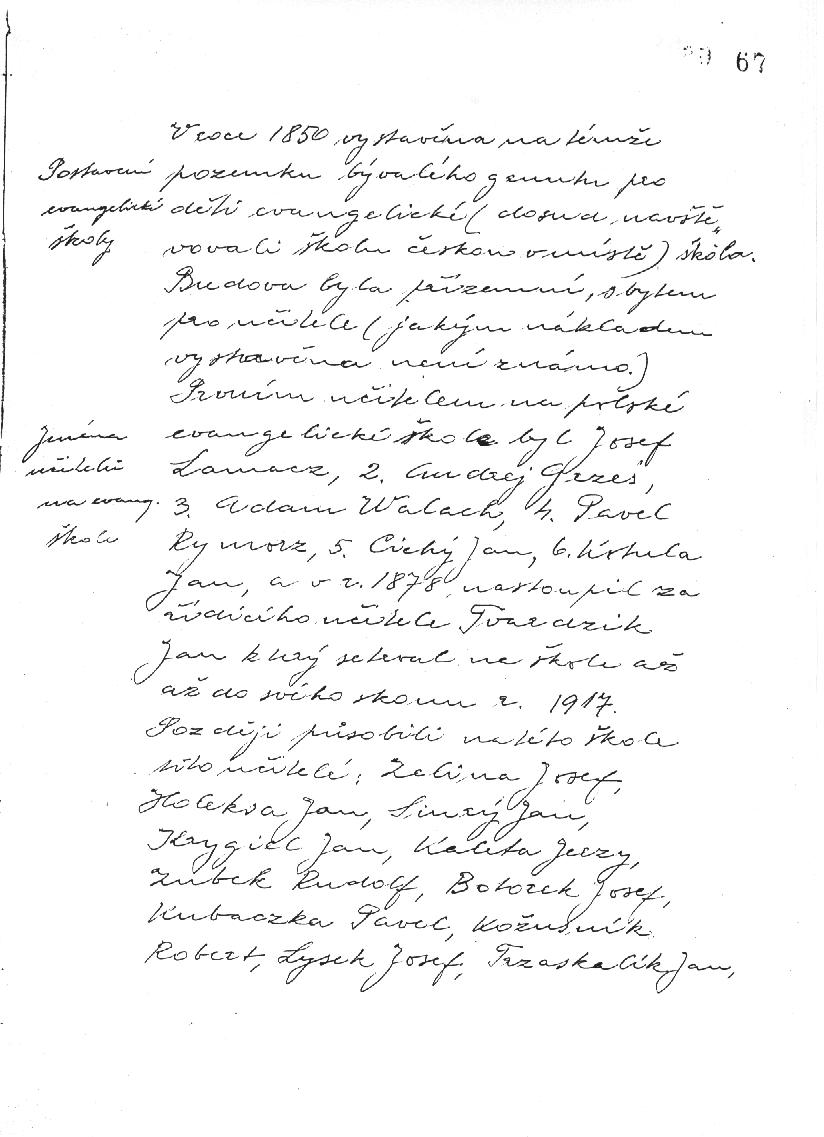 67
V roce 1850 vystavěna na témže
Postavení
evangelické
školy
pozemku bývalého gruntu pro
děti evangelické (dosud navště„
vovali školu českou v místě) škola.
Budova byla přízemní, s bytem
pro učitele (jakým nákladem
vystavěna není známo.)
Prvním učitelem na polské
Jména
učitelů
na evang.
škole
evangelické škole byl Josef
Lamacz, 2. Andrej Grzeš,
3. Adam Walach, 4. Pavel
Rymorz, 5. Cichý Jan, 6. Krhula
Jan, a v r. 1878 nastoupil za
řídícího učitele Tvardzik
Jan který seterval na škole až
až do svého skonu r. 1917.
Později působili na této škole
tito učitelé: Zelina Josef,
Holeksa Jan, Jan,
Krygiel Jan, Kaleta Jerzy,
Zubek Rudolf, Botorek Josef,
Kubaczka Pavel, Kožusník
Robert, Lysek Josef, Trzaskalik Jan,